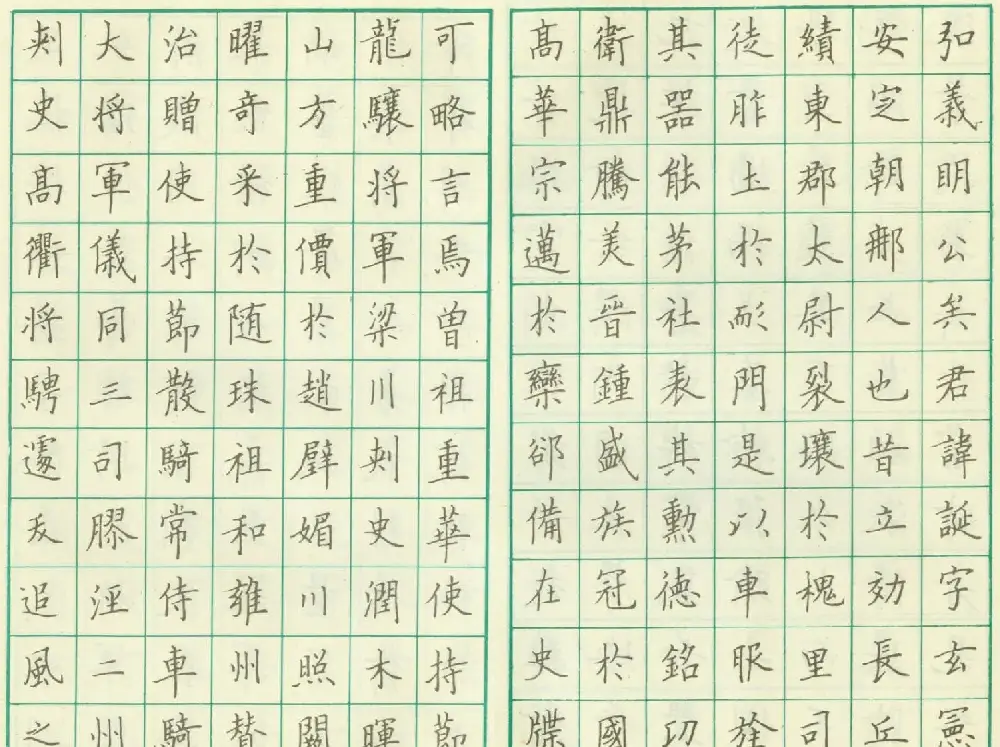 弘義明公矣君諱誕字玄憲
安定朝那人也昔立効長丘
績東郡太尉裂壤於槐里司
徒胙土於耏門是以車服旌
其器能茅社表其勲德銘功
衛鼎騰美晉鍾盛族冠於國
髙華宗邁於欒郤備在史牒
可略言焉曽祖重華使持節
龍驤将軍梁川刺史潤木暉
山方重價於趙璧媚川照闕
曜奇采於随珠祖和雍州賛
治贈使持節散騎常侍車騎
大将軍儀同三司膠涇二州
刺史髙衢将騁遽夭追風之